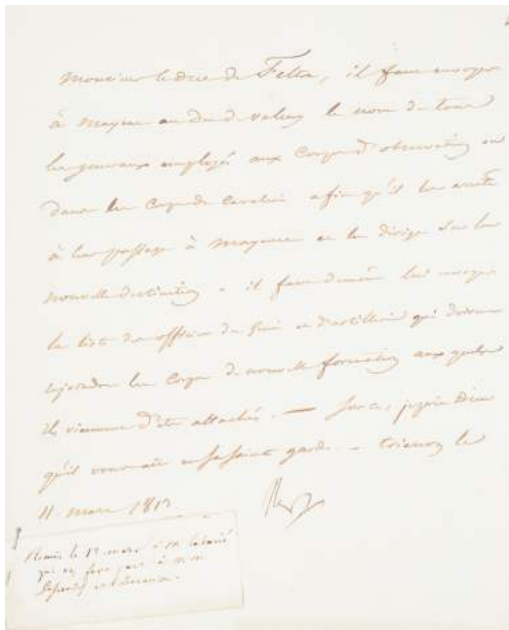 Monsieur le Duc de Feltre, il faut envoyer
à Mayence au Duc de Valmy le nom de tous
les généraux employés aux Corps d'observation ou
dans les Corps de Cavalerie afin qu'il les arrête
à leur passage à Mayence et les dirige sur leur
nouvelle destination. il faut de même lui envoyer
la liste des officiers du Génie et d'artillerie qui doivent
rejoindre les Corps de nouvelle formation auxquels
ils viennent d'être attachés. — Sur ce, je prie Dieu
qu'il vous ait en sa sainte garde. — Trianon le
11 mars 1813
Np
le 12 mars à M.
qui en fera part à M.M.